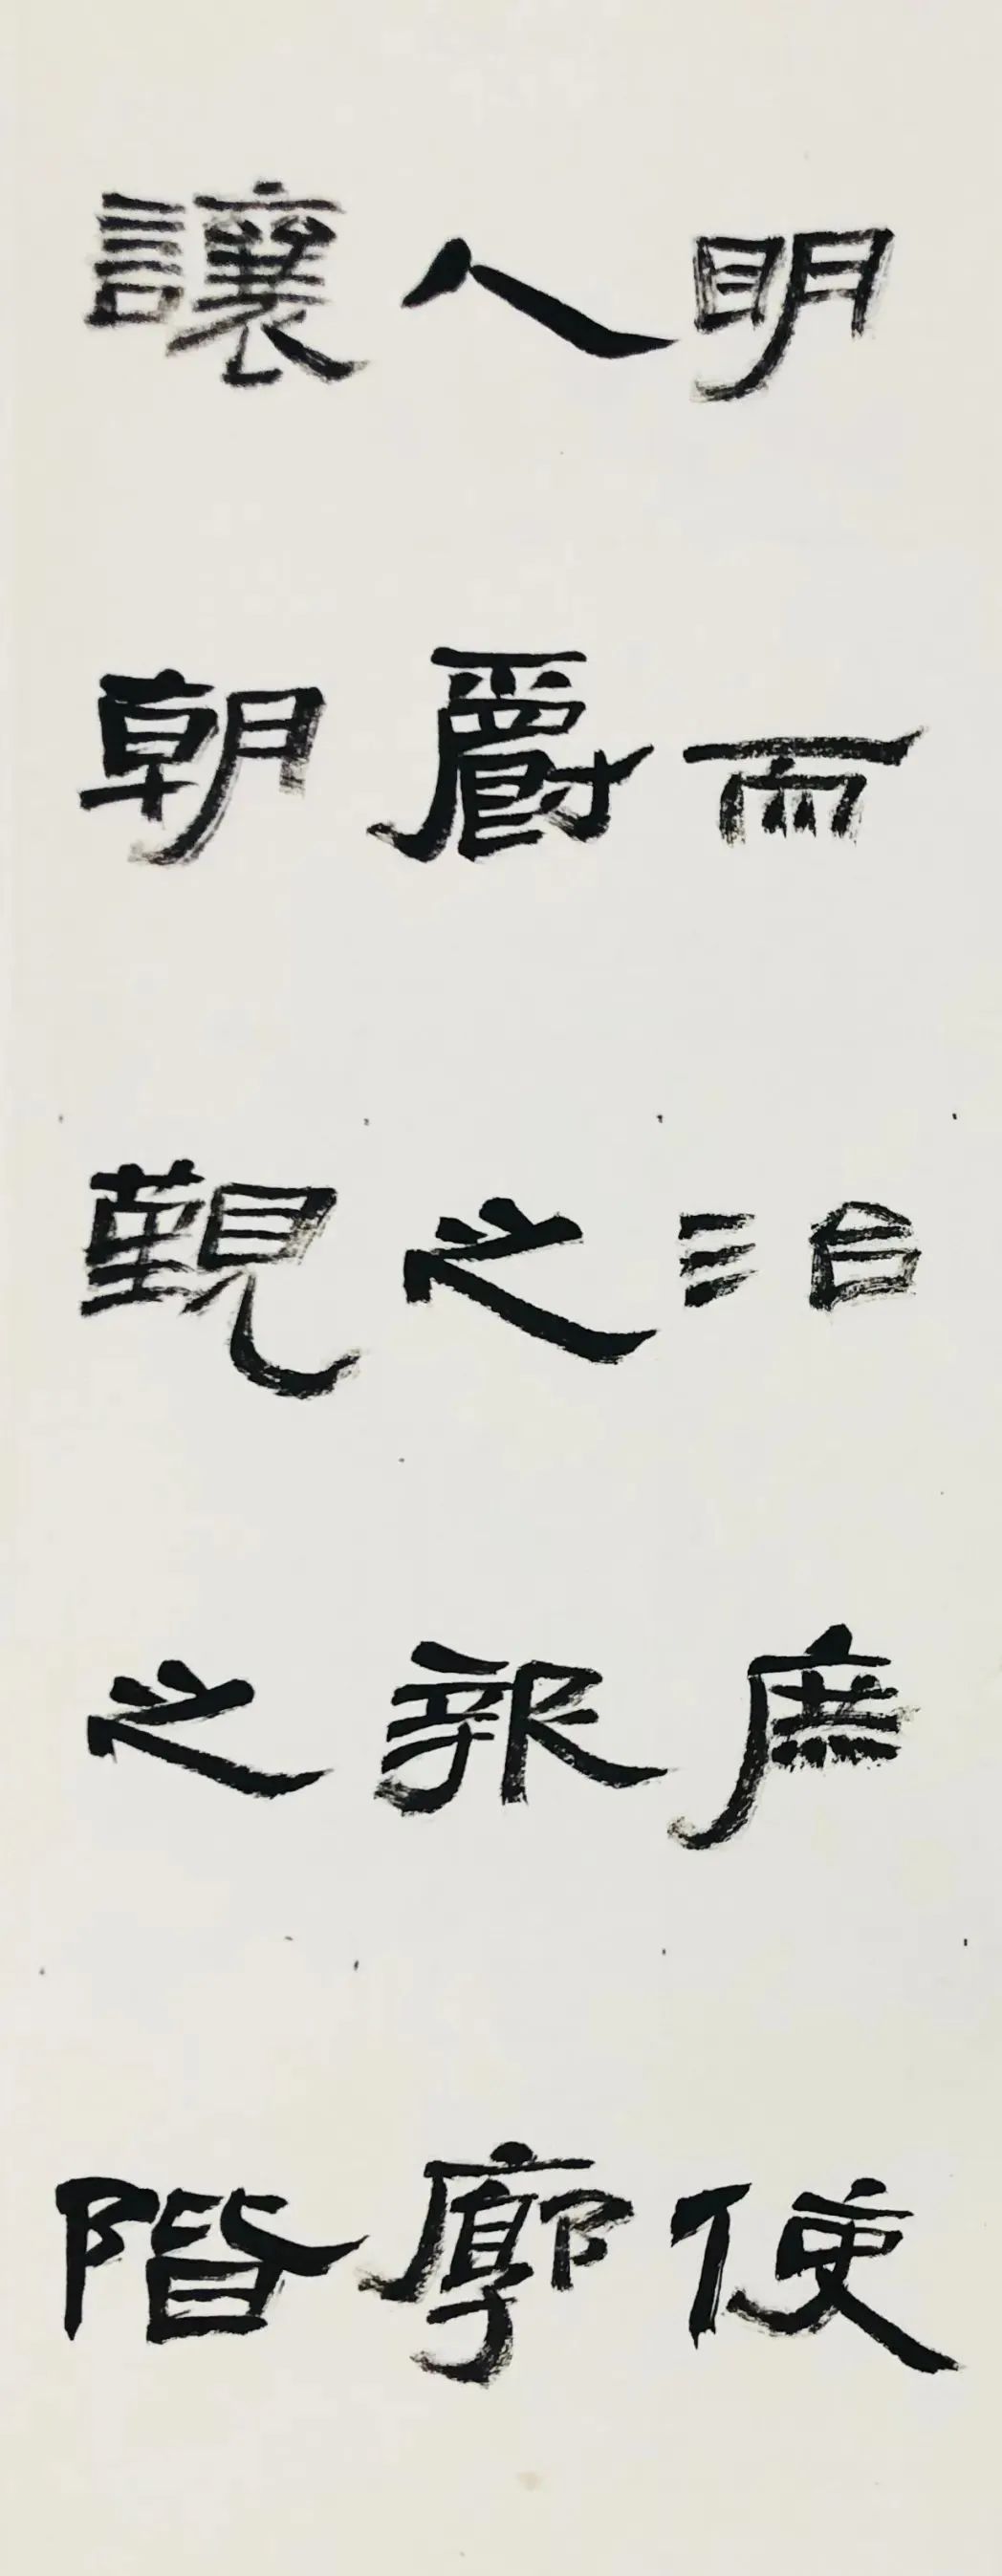 明而治庶使
人爵之報廓
讓朝覲之階